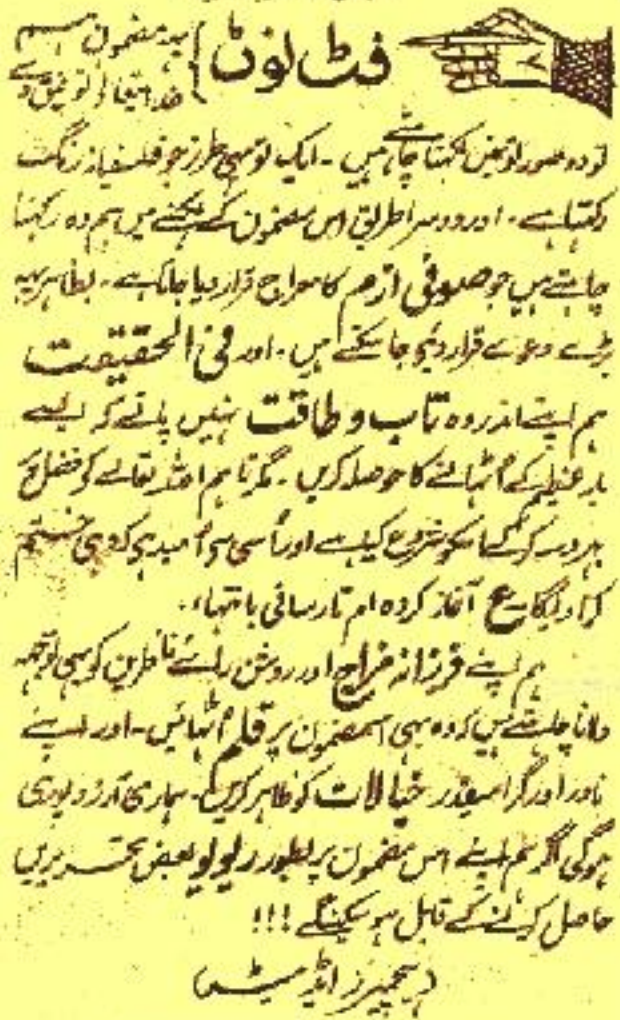 فٹ نوٹ } یہ مضمون ہم
خدا تعالیٰ توفیق دے
تو دو صورتوں میں لکھنا چاہتے ہیں ۔ ایک تو یہی طرز جو فلسفیانہ رنگت
رکھتا ہے ۔ اور دوسرا طریق اس مضمون کے لکھنے میں ہم وہ رکھنا
چاہتے ہیں جو صوفی ازم کا معراج قرار دیا جاتا ہے ۔ بظاہر یہ
بڑے دعوے قرار دئیے جا سکتے ہیں ۔ اور فی الحقیقت
ہم اپنے اندر وہ تاب و طاقت نہیں پاتے کہ ایسے
بار عظیم کے اُٹھانے کا حوصلہ کریں ۔ مگر تاہم اللہ تعالےٰ کے فضل پر
بہروسہ کر کے اسکو شروع کیا ہے اور اُسی سے اُمید ہے کہ وہی ختم
کرا دیگا ع آغاز کردہ ام تا رسانی با نتہاء ۔
ہم اپنے فرزانہ مزاج اور روشن رائے ناظرین کو بھی توجہ
دلانا چاہتے ہیں کہ وہ بھی اس مضمون پر قلم اُٹھائیں ۔ اور اپنے
نادر اور گرانقدر خیالات کو ظاہر کریں ۔ ہماری آرزو پوری
ہوگی اگر ہم اپنے اس مضمون پر بطور ریویو بعض تحریریں
حاصل کرنے کے قابل ہو سکینگے !!!
( ایڈیٹر )